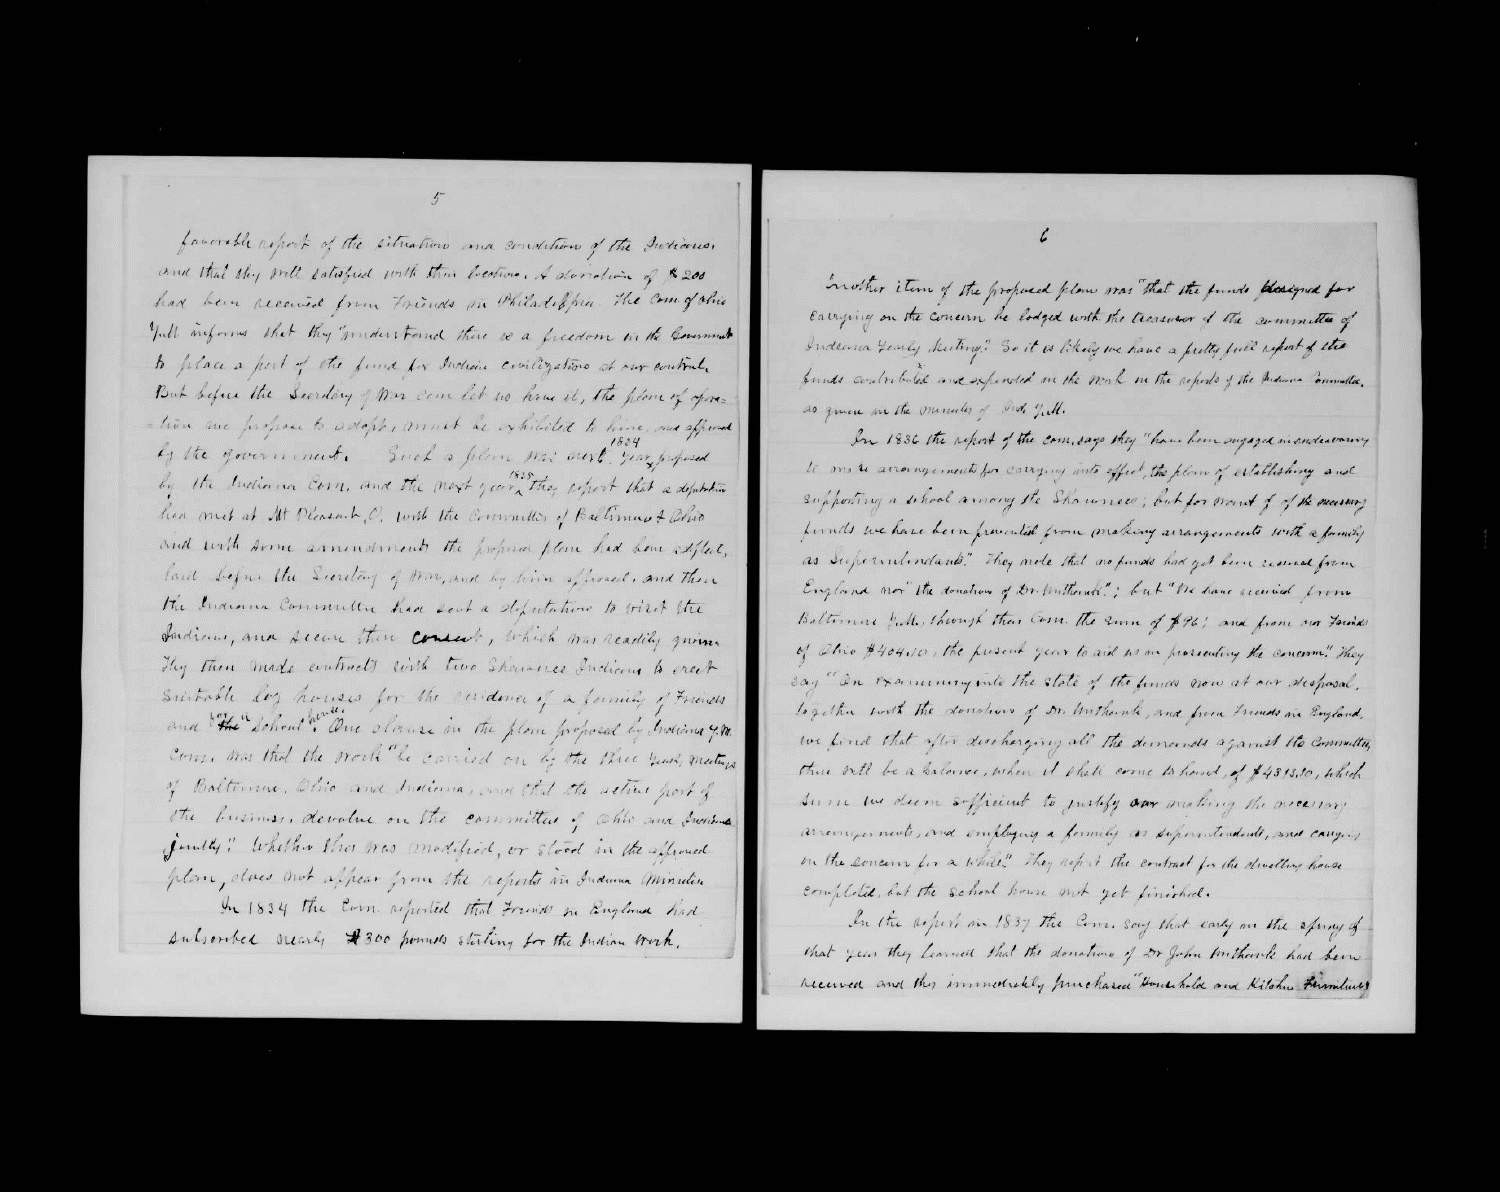 5
favorable report of the situation and condition of the Indians.
and that they well satisfied with their location. A donation of $200
had been received from Friends in Philadelphia. The Com. of Ohio
Y.M. informs that they "understand there is a freedom in the Government
to place a part of the fund for Indian civilization at our control.
But before the Secretary of War can let us have it, the plan of opera=
=tion we propose to adopt, must be exhibited to him, and approved
by the government. Such a plan was next year 1834 proposed
by the Indiana Com. and the next year 1835 they report that a deputation
had met at Mt Pleasant, O. with the Committees of Baltimore & Ohio
and with some amendments the proposed plan had been adopted,
laid before the Secretary of War, and by him approved. and then
the Indiana Committee had sent a deputation to visit the
Indians, and secure their consent, which was readily given.
They then made contracts with two Shawnee Indians to erect
suitable log houses for the residence of a family of Friends
and for "school" house. One clause in the plan proposed by Indiana Y.M.
Com. was that the work "be carried on by the three Yearly Meetings
of Baltimore, Ohio and Indiana, and that the active part of
the business, devolve on the committees of Ohio and Indiana
jointly." Whether this was modified, or stood in the approved
plan, does not appear from the reports in Indiana Minutes
In 1834 the Com. reported that Friends in England had
subscribed nearly 300 pounds sterling for the Indian Work.
6
Another item of the proposed plan was "that the funds designed for
carrying on the concern be lodged with the treasurer of the committee of
Indiana Yearly Meeting." So it is likely we have a pretty full report of the
funds contributed and expended in the work in the reports of the Indiana Committee.
as given in the minutes of Ind. Y.M.
In 1836 the report of the com. says they "have been engaged in endeavoring
to make arrangements for carrying into effect, the plan of establishing and
supporting a school among the Shawnees; but for want of of the necessary
funds we have been prevented from making arrangements with a family
as Superintendants." They note that no funds had yet been received from
England nor "the donation of Dr. Unthank"; but "We have received from
Baltimore Y.M. through their Com. the sum of $96; and from our Friends
of Ohio $404.10, the present year to aid us in prosecuting the concern." They
say "On examining into the state of the funds now at our disposal,
together with the donation of Dr. Unthank, and from Friends in England,
we find that after discharging all the demands against the Committee,
there will be a balance, when it shall come to hand, of which
sum we deem sufficient to justify our making the necessary
arrangements, and employing a family as superintendents, and carrying
on the concern for a while." They report the contract for the dwelling house
completed, but the school house not yet finished.
In the report in 1837 the Com. say that early in the spring of
that year they learned that the donation of Dr John Unthank had been
received and they immediately purchased "Household and Kitchen Furniture